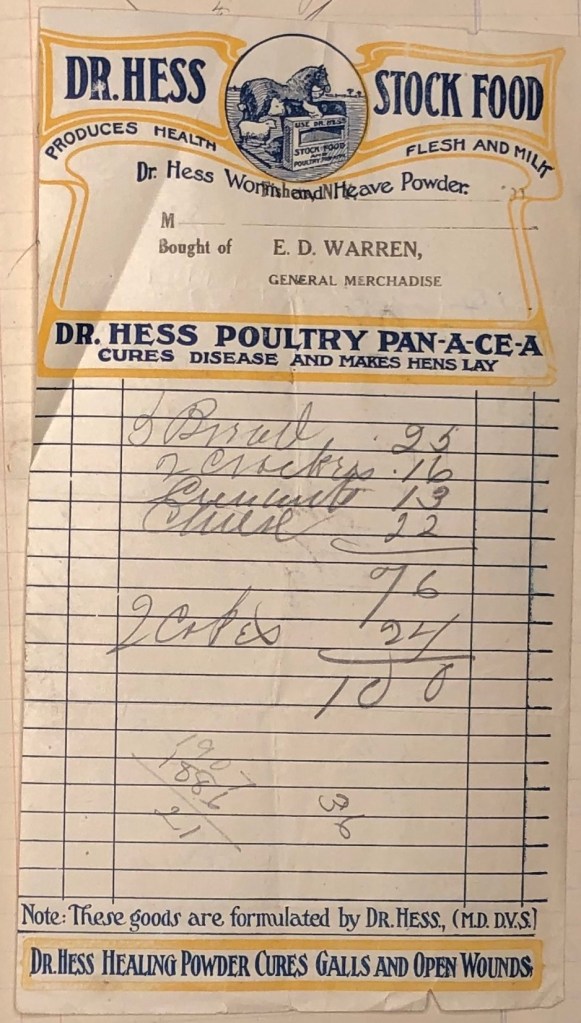 DR. HESS STOCK FOOD
USE DR. HESS
STOCK FOOD
AND
POULTRY PAN-A-CE-A
PRODUCES HEALTH FLESH AND MILK
Dr. Hess Worm and Heave Powder.
M
Bought of E. D. WARREN,
GENERAL MERCHADISE
DR. HESS POULTRY PAN-A-CE-A
CURES DISEASE AND MAKES HENS LAY
3 Bread 25
2 Crackers 16
13
Cheese 22
76
2 Cakes 24
100
36
Note: These goods are formulated by DR. HESS., (M.D. D.V.S.)
DR. HESS HEALING POWDER CURES GALLS AND OPEN WOUNDS